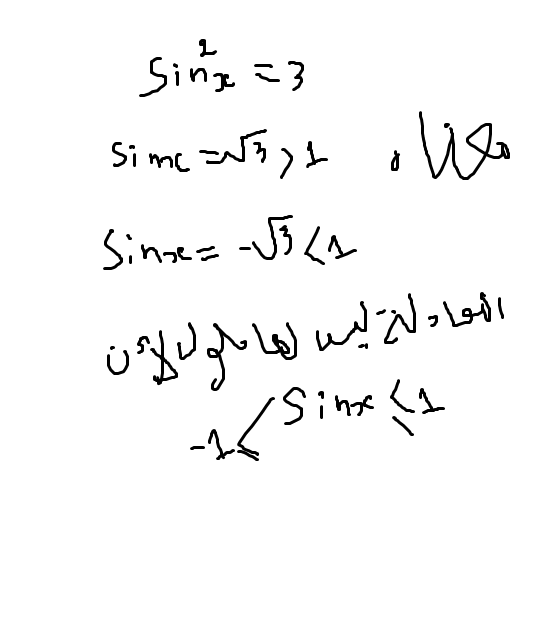 sin²x = 3
sinx = √3 > 1 ,
sinx = -√3 < 1
المعادلة ليس لها حلول لأن
-1 ≤ sinx ≤ 1